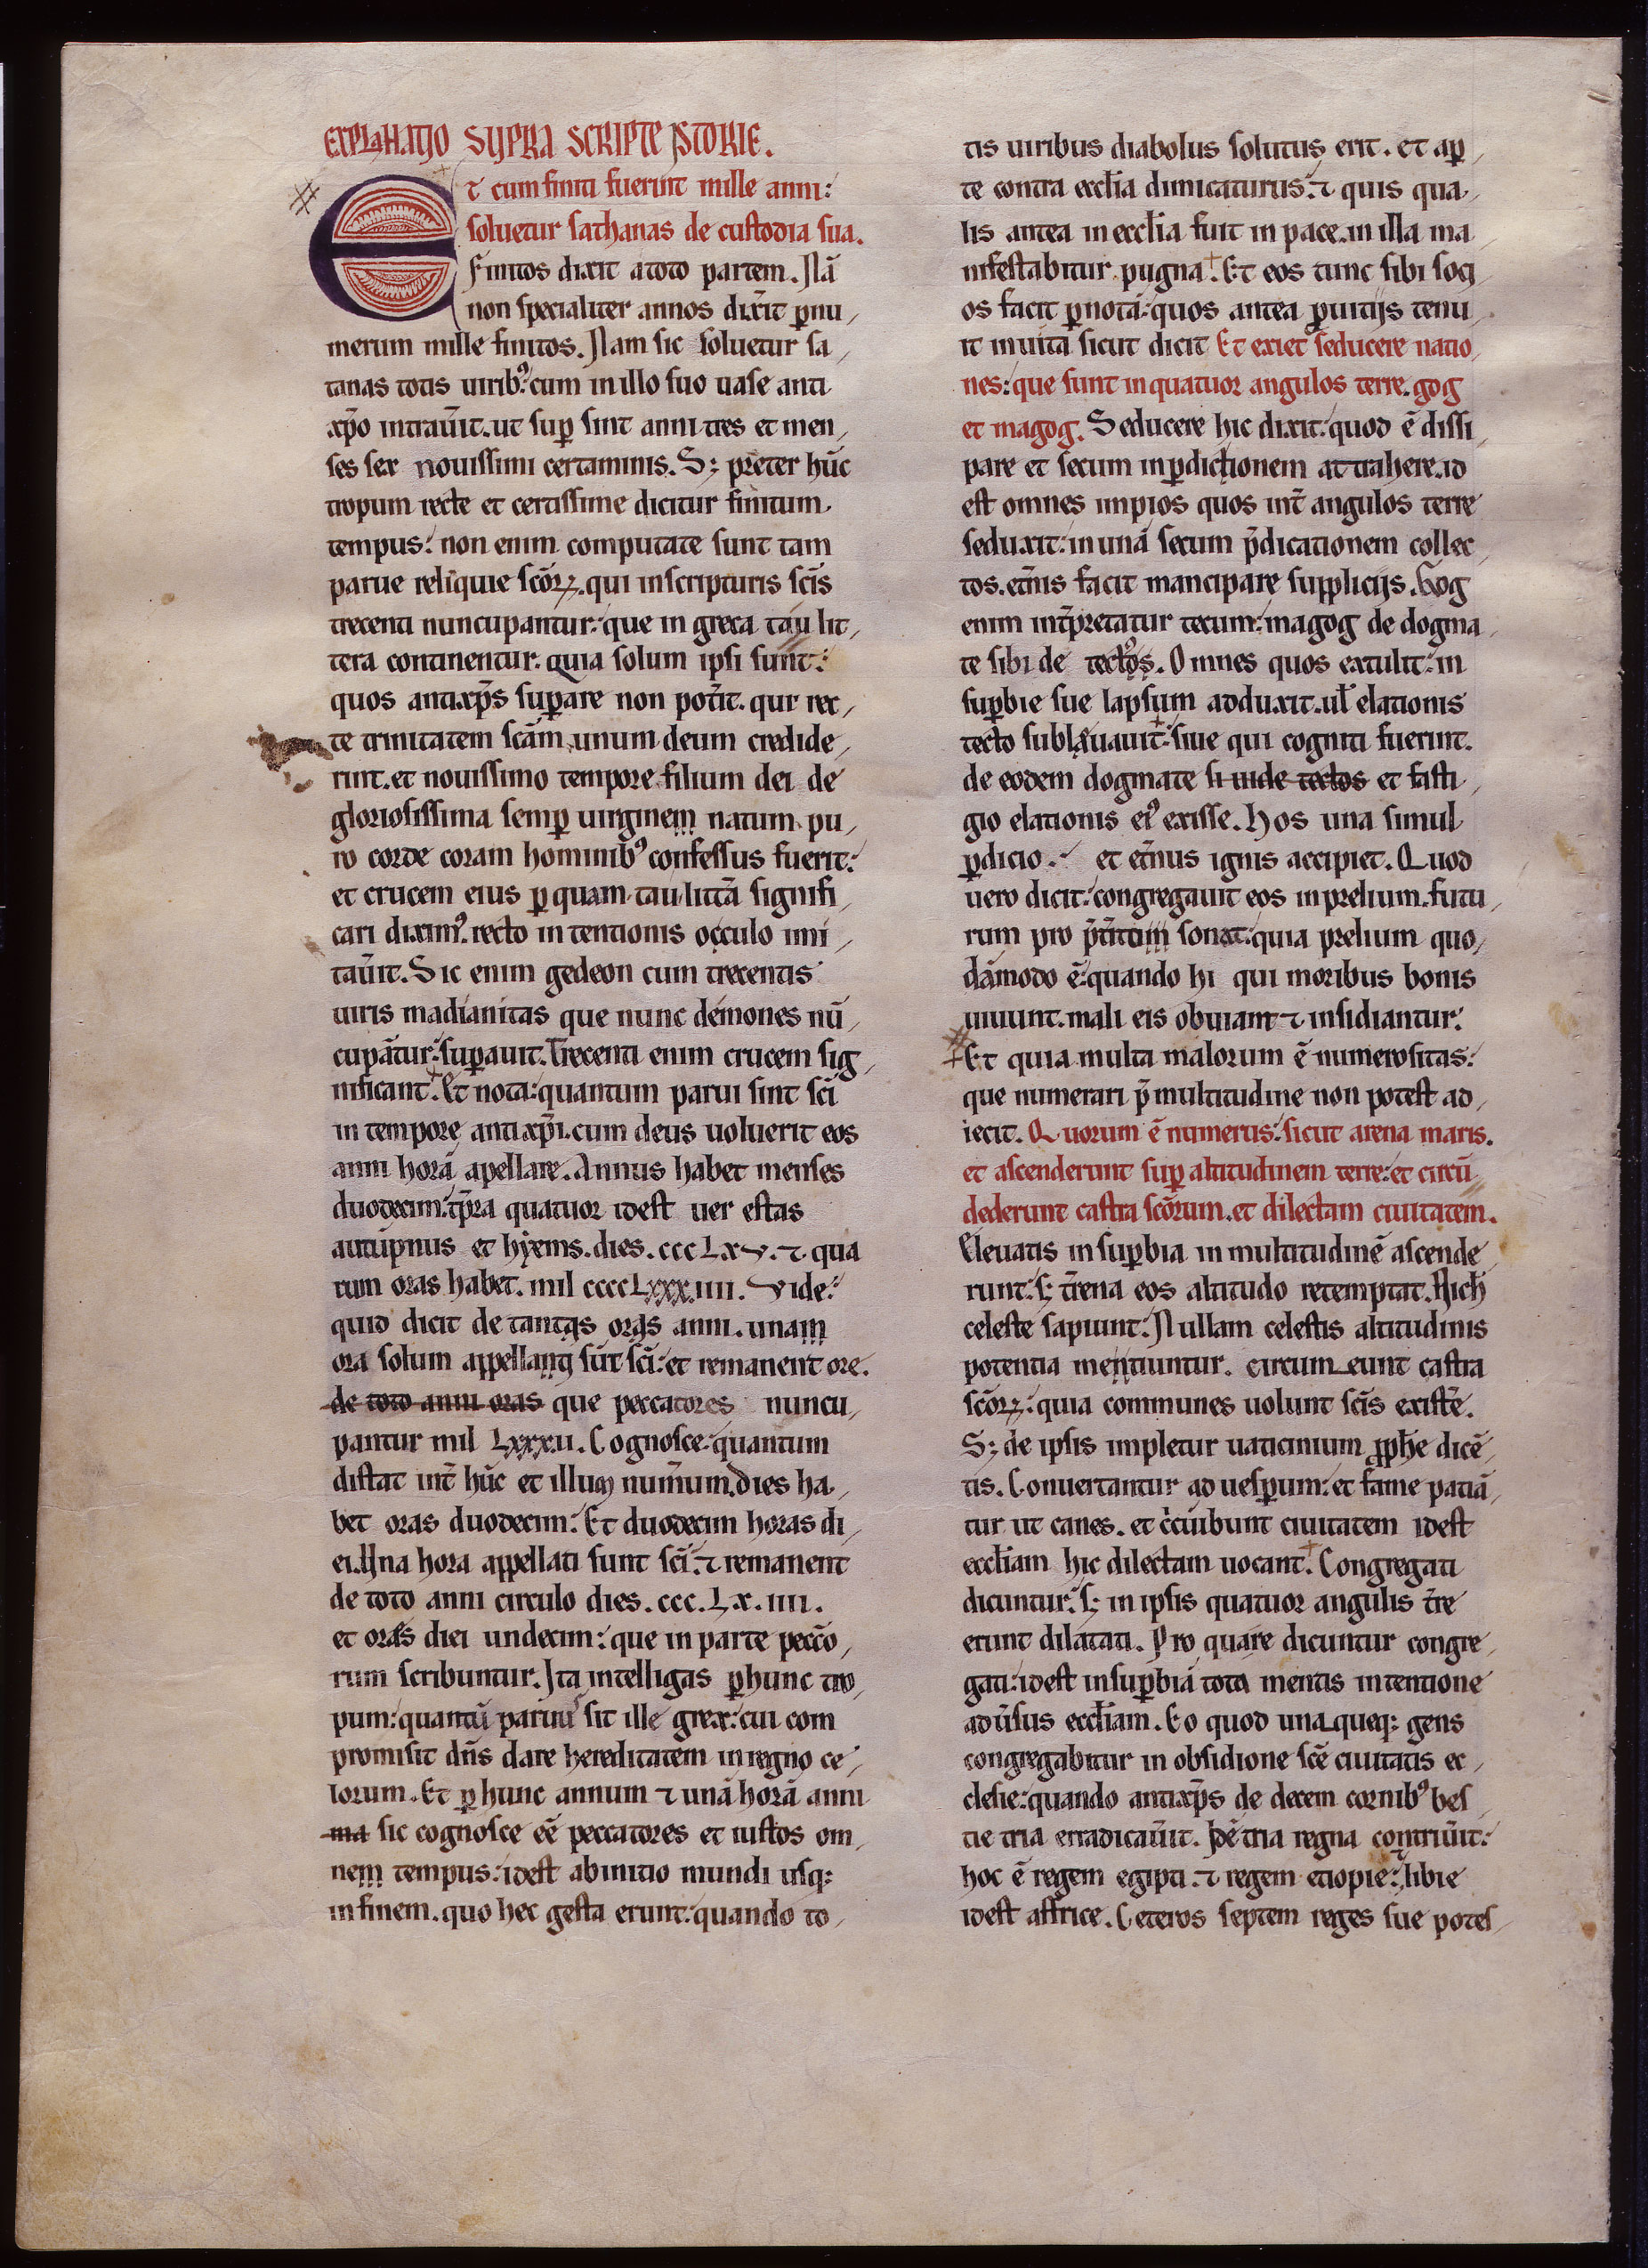 EXPLANATIO SUPRA SCRIPTE ISTORIE.
Et cum finiti fuerint mille anni:
soluetur sathanas de custodia sua.
Finitos dixit a toto partem. Nã
non specialiter annos dix̃it ꝑnu
merum mille finitos. Nam sic soluetur sa
tanas totis uirib᾿: cum in illo suo uase anti
xp̃o intrau̾it. ut suꝑ sint anni tres et men
ses sex nouissimi certaminis. Sꝫ preter hũc
tropum recte et certissime dicitur finitum
tempus: non enim computate sunt tam
parue reliquie scõrꝝ. qui in scripturis scĩs
trecenti nuncupantur: que in greca tau lit
tera continentur. Quia solum ipsi sunt:
quos antixp̃s suꝑare non pot̾it. qur rec
te trinitatem scãm unum deum credide
rint. et nouissimo tempore filium dei de
gloriosissima semꝑ uirginem natum pu
ro corde coram hominib᾿ confessus fuerit:
et crucem eius ꝑ quam tau litt̾a signifi
cari dixim᾿. recto intentionis occulo imi
tau̾it. Sic enim gedeon cum trecentis
uiris madianitas que nunc demones nũ
cupãtur: suꝑauit. Trecenti enim crucem sig
nificant. Et nota: quantum parui sint scĩ
in tempore antixp̃i. cum deus uoluerit eos
anni horã apellare. Annus habet menses
duodecim: tp̃ra quatuor idest uer estas
autumpnus et hyems. dies. ccc Lxv. ⁊ qua
rum oras habet. mil cccc Lxxx. iiii. Vide:
quid dicit de tantas oras anni. unam
ora solum appellanti sũt scĩ: et remanent ore.
de toto anni oras que peccatores nuncu
pantur mil Lxxxii. Cognosce: quantum
distat int̾ hũc et illum num̾um. dies ha
bet oras duodecim: Et duodecim horas di
ei. Una hora appellati sunt scĩ: ⁊ remanent
de toto anni circulo dies. ccc. Lx. iiii.
et oras diei undecim: que in parte peccõ
rum scribuntur. Ita intelligas ꝑ hunc tro
pum: quantũ paruu᾿ sit ille grex: cui com
promisit dñs dare hereditatem in regno ce
lorum. Et ꝑ hunc annum ⁊ unã horã anni
ma sic cognosce eẽ peccatores et iustos om
nem tempus: idest abinitio mundi usqꝫ
in finem. quo hec gesta erunt: quando to
tis uiribus diabolus solutus erit. et aꝑ
te contra eccl̃ia dimicaturus: ⁊ quis qua
lis antea in eccl̃ia fuit in pace. in illa ma
nifestabitur pugna. Et eos tunc sibi soci
os facit ꝑ notã: quos antea ꝑ uitijs tenu
it in uita sicut dicit Et exiet seducere natio
nes: que sunt in quatuor angulos terre. gog
et magog. Seducere hic dixit: quod ẽ dissi
pare et secum in ꝑdictionem attrahere. id
est omnes impios quos int̾ angulos terre
seduxit: in unã secum p̃dicationem collec
tos. et̾nis facit mancipare supplicijs. Gog
enim int̾pretatur tecum: magog de dogma
te sibi de tectos. Omnes quos extulit: in
suꝑbie sue lapsum adduxit. ul̃ elationis
tecto subleuauit: siue qui cogniti fuerint.
de eodem dogmate si uide tectos et fasti
gio elationis ei᾿ exisse. Hos una simul
ꝑdicio: et et̾nus ignis accipiet. Quod
uero dicit: congregauit eos in prelium. futu
rum pro p̃t̾itum sonat: quia prelium quo
dãmodo ẽ: quando hi qui moribus bonis
uiuunt. mali eis obuiant ⁊ insidiantur:
Et quia multa malorum ẽ numerositas:
que numerari p̃ multitudine non potest ad
iecit. Quorum ẽ numerus: sicut arena maris.
et ascenderunt suꝑ altitudinem terre: et circũ
dederunt castra scõrum. et dilectam ciuitatem.
Eleuatis in suꝑbia in multitudinẽ ascende
runt: sꝫ t̾rena eos altitudo retemptat. Nich̃
celeste sapiunt: Nullam celestis altitudinis
potentia mentiuntur. circum eunt castra
scõrꝝ: quia communes uolunt scĩs exist̾e.
Sꝫ de ipsis impletur uaticinium ꝓph̃e dicẽ
tis. Conuertantur ad uesꝑum: et fame patiã
tur ut canes. et c̾cuibunt ciuitatem idest
eccl̃iam hic dilectam uocant. Congregati
dicuntur: sꝫ in ipsis quatuor angulis t̾re
erunt dilatati. Pro quare dicuntur congre
gati: idest in suꝑbiã tota mentis intentione
adu̾sus eccl̃iam. Eo quod unaqueqꝫ gens
congregabitur in obsidione scẽ ciuitatis ec
clesie: quando antixp̃s de decem cornib᾿ bes
tie tria erradicau̾it. Idẽ tria regna contriu̾it:
hoc ẽ regem egipti. ⁊ regem etiopie: ⁊ libie
idest affrice. Ceteros septem reges sue potes